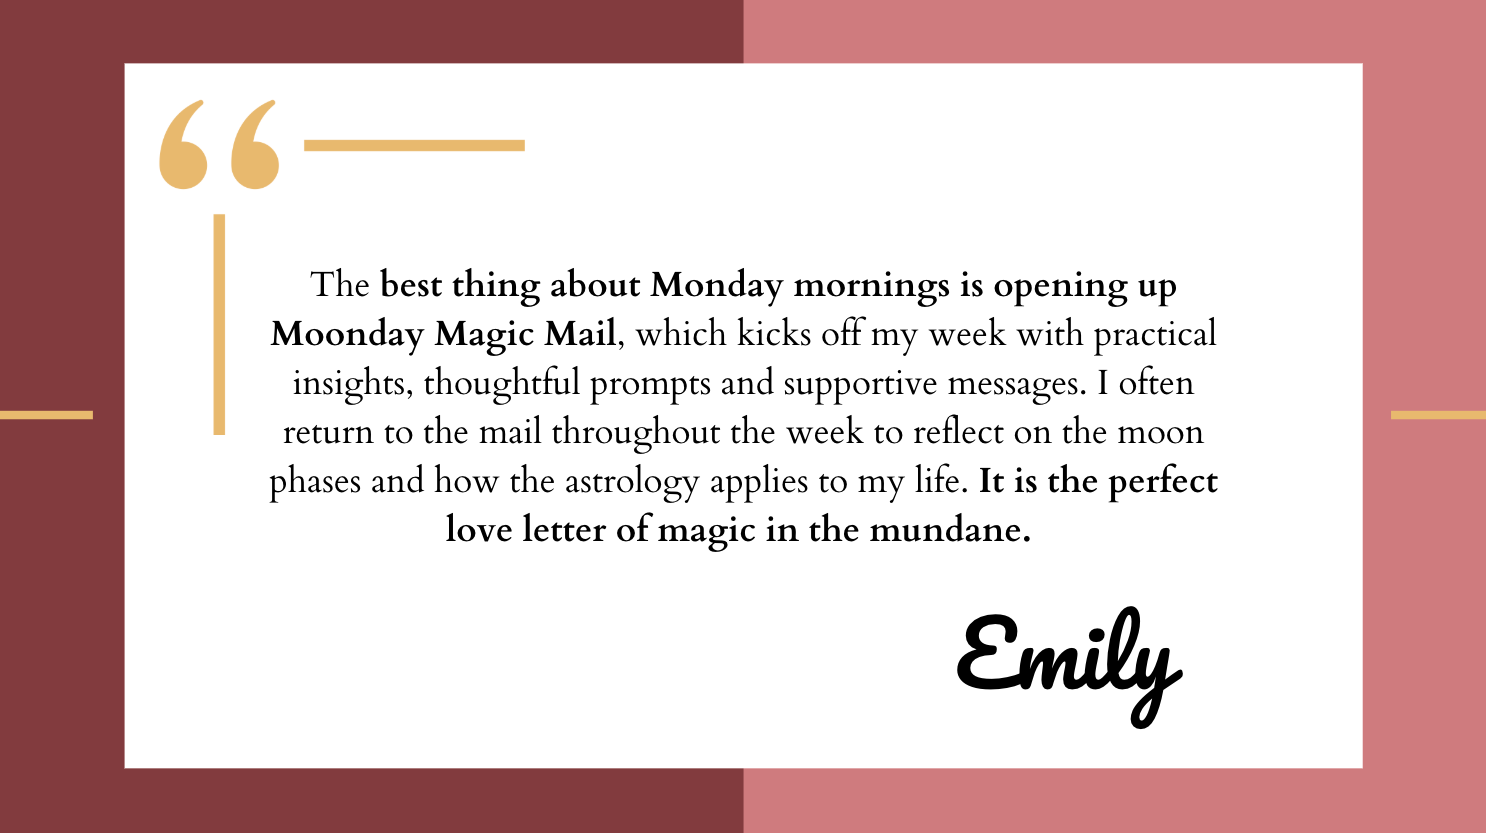 “
The best thing about Monday mornings is opening up
Moonday Magic Mail, which kicks off my week with practical
insights, thoughtful prompts and supportive messages. I often
return to the mail throughout the week to reflect on the moon
phases and how the astrology applies to my life. It is the perfect
love letter of magic in the mundane.
Emily